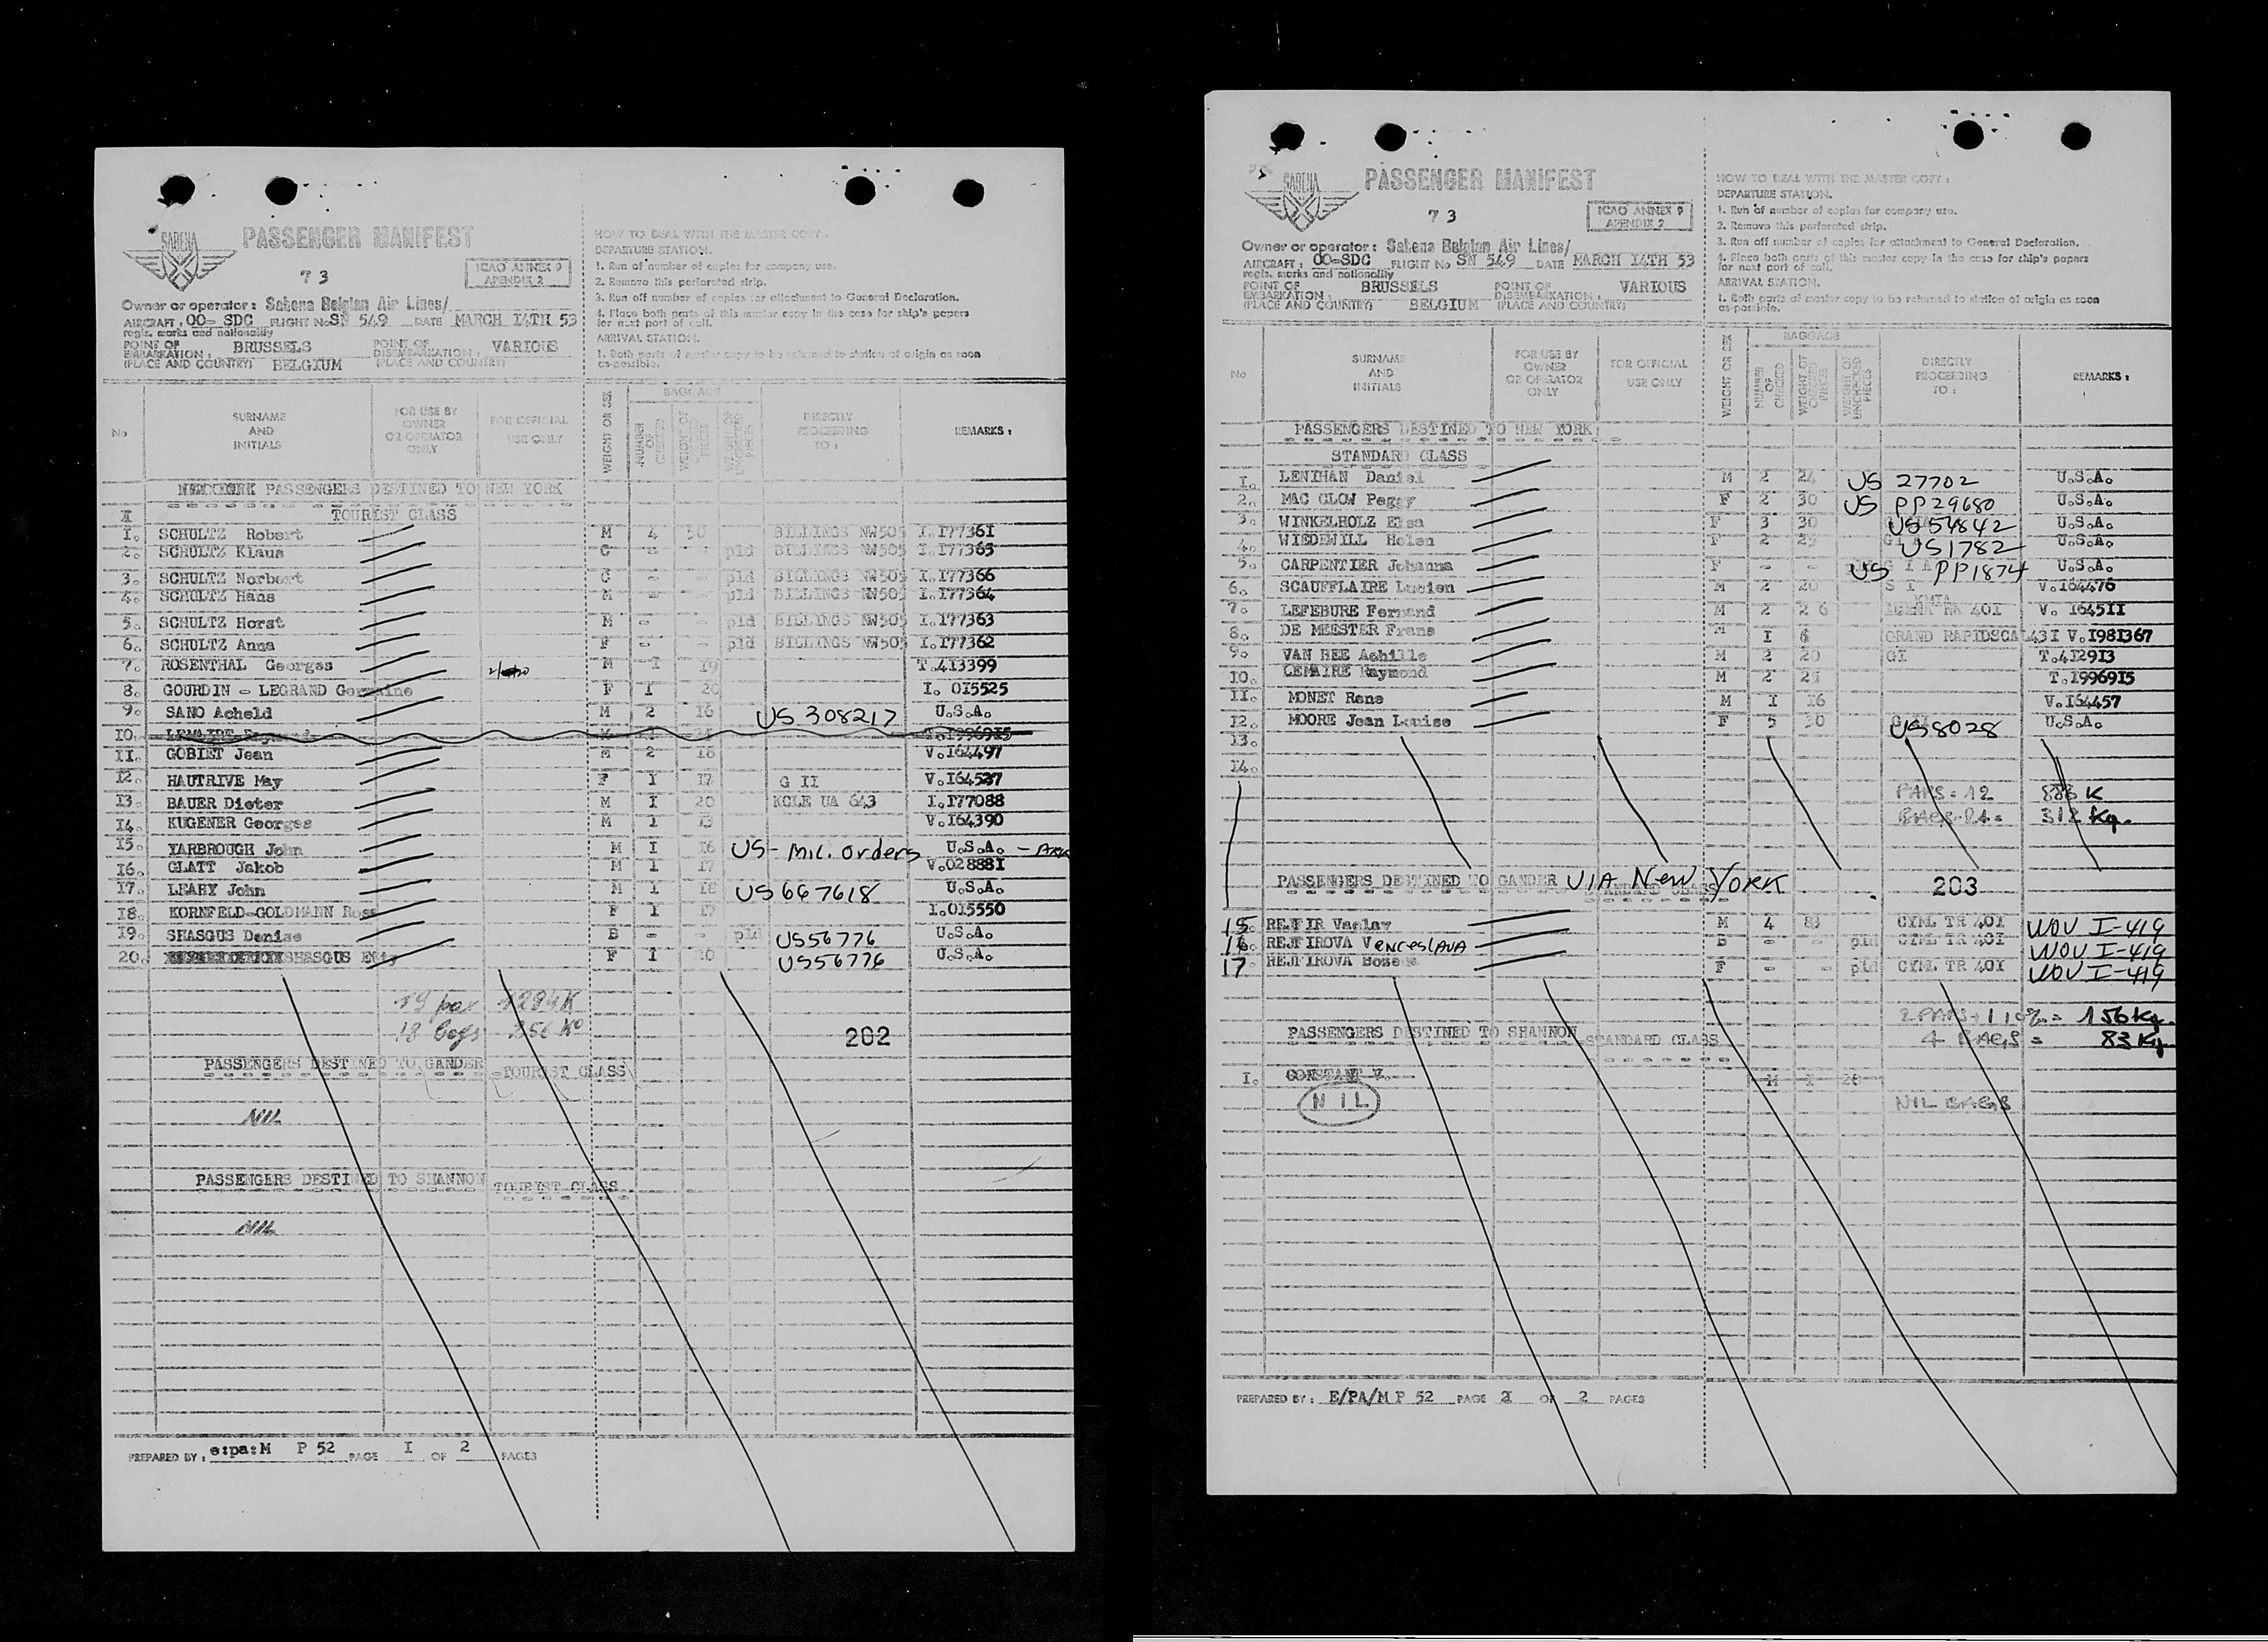 SABENA
PASSENGER MANIFEST
73
ICAO ANNEX 9
APENDIX 2
Owner or operator : Sabena Belgian Air Lines/
AIRCRAFT : OO- SDC FLIGHT No SN 549 DATE MARCH I4TH 53
regis. marks and nationality
POINT OF EMBARKATION : (PLACE AND COUNTRY) BRUSSELS BELGIUM
POINT OF DISEMBARKATION : (PLACE AND COUNTRY) VARIOUS
HOW TO DEAL WITH THE MASTER COPY :
DEPARTURE STATION.
1. Run of number of copies for company use.
2. Remove this perforated strip.
3. Run off number of copies for attachment to General Declaration.
4. Place both parts of this master copy in the case for ship's papers
for next port of call.
ARRIVAL STATION.
1. Both parts of master copy to be returned to station of origin as soon
as-possible.
No SURNAME AND INITIALS FOR USE BY OWNER OR OPERATOR ONLY FOR OFFICIAL USE ONLY WEIGHT OR SEX BAGGAGE NUMBER OF CHECKED WEIGHT OF CHECKED PIECES WEIGHT OF UNCHECKED PIECES DIRECTLY PROCEEDING TO : REMARKS :
PASSENGERS DESTINED TO NEW YORK
TOURIST CLASS
I. SCHULTZ Robert M 4 30 BILLINGS NW505 I.I7736I
2. SCHULTZ Klaus C - - pld BILLINGS NW505 I.I77365
3. SCHULTZ Norbert C - - pld BILLINGS NW505 I.I77366
4. SCHULTZ Hans M - - pld BILLINGS NW505 I.I77364
5. SCHULTZ Horst M - - pld BILLINGS NW505 I.I77363
6. SCHULTZ Anna F - - pld BILLINGS NW505 I.I77362
7. ROSENTHAL Georges M I 19 T.4I3399
8. GOURDIN - LEGRAND Germaine F I 20 I. 0I5525
9. SANO Acheld M 2 I6 US 308217 U.S.A.
IO. LEMAIRE Raymond T.I9969I5
II. GOBIET Jean M 2 I8 V.I64497
I2. HAUTRIVE May F I I7 G II V.I64527
I3. BAUER Dieter M I 20 KCLE UA 643 I.I77088
I4. KUGENER Georges M I I3 V.I64390
I5. YARBROUGH John M I I6 US - Mil. orders U.S.A.
I6. GLATT Jakob M I I7 V.02888I
I7. LEARY John M I I8 US 667618 U.S.A.
I8. KORNFELD-GOLDMANN Rose F I I7 I.0I5550
I9. SHASGUS Denise B - - pld US56776 U.S.A.
20. SHASGUS F I US56776 U.S.A.
19 pax 1294K
18 bags 256 Ko
202
PASSENGERS DESTINED TO GANDER -TOURIST CLASS
NIL
PASSENGERS DESTINED TO SHANNON TOURIST CLASS
NIL
PREPARED BY : e:pa:M P 52 PAGE I OF 2 PAGES
SABENA
PASSENGER MANIFEST
73
ICAO ANNEX 9
APENDIX 2
Owner or operator : Sabena Belgian Air Lines/
AIRCRAFT : OO-SDC FLIGHT No SN 549 DATE MARCH I4TH 53
regis. marks and nationality
POINT OF EMBARKATION : (PLACE AND COUNTRY) BRUSSELS BELGIUM
POINT OF DISEMBARKATION : (PLACE AND COUNTRY) VARIOUS
HOW TO DEAL WITH THE MASTER COPY :
DEPARTURE STATION.
1. Run of number of copies for company use.
2. Remove this perforated strip.
3. Run off number of copies for attachment to General Declaration.
4. Place both parts of this master copy in the case for ship's papers
for next port of call.
ARRIVAL STATION.
1. Both parts of master copy to be returned to station of origin as soon
as-possible.
No SURNAME AND INITIALS FOR USE BY OWNER OR OPERATOR ONLY FOR OFFICIAL USE ONLY WEIGHT OR SEX BAGGAGE NUMBER OF CHECKED WEIGHT OF CHECKED PIECES WEIGHT OF UNCHECKED PIECES DIRECTLY PROCEEDING TO : REMARKS :
PASSENGERS DESTINED TO NEW YORK
STANDARD CLASS
I. LENIHAN Daniel M 2 24 US 27702 U.S.A.
2. MAC CLOW Peggy F 2 30 US PP29680 U.S.A.
3. WINKELHOLZ Elsa F 3 30 US54842 U.S.A.
4. WIEDEWILL Helen F 2 25 US1782 U.S.A.
5. CARPENTIER Johanna F - - US PP1874 U.S.A.
6. SCAUFFLAIRE Lucien M 2 20 S I V.I64476
7. LEFEBURE Fernand M 2 26 NA 40I V. I645II
8. DE MEESTER Frans M I 6 GRAND RAPIDSCA 43I V.I98I367
9. VAN BEE Achille M 2 20 GI T.4I29I3
IO. LEMAIRE Raymond M 2 25 T.I9969I5
II. MONET Rene M I I6 V.I64457
I2. MOORE Jean Louise F 5 30 US8028 U.S.A.
I3.
I4.
PAXS = 12 K
BAGS 24 = 312 Kg.
PASSENGERS DESTINED TO GANDER VIA New YORK
STANDARD CLASS
203
15. REJFIR Vaclav M 4 83 CYML TR 40I WOV I-419
16. REJFIROVA VenceslAVA B - - pld CYML TR 40I WOV I-419
17. REJFIROVA F - - pld CYML TR 40I WOV I-419
2 PAXS + 1 10% = 156Kg.
4 BAGS = 83Kg
PASSENGERS DESTINED TO SHANNON -STANDARD CLASS
I. CONSTANT V. M I 20
NIL
NIL BAGS
PREPARED BY : E/PA/M P 52 PAGE 2 OF 2 PAGES